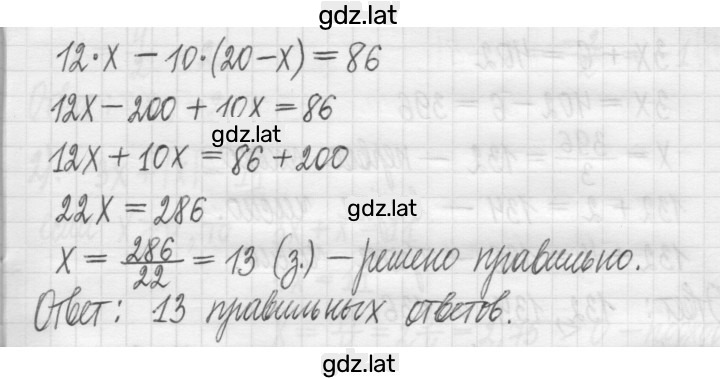 gdz.lat
12·x − 10·(20−x) = 86
12x − 200 + 10x = 86
gdz.lat
12x + 10x = 86 + 200
22x = 286.
gdz.lat
x = 286/22 = 13 (з.) – решено правильно.
Ответ: 13 правильных ответов.
gdz.lat